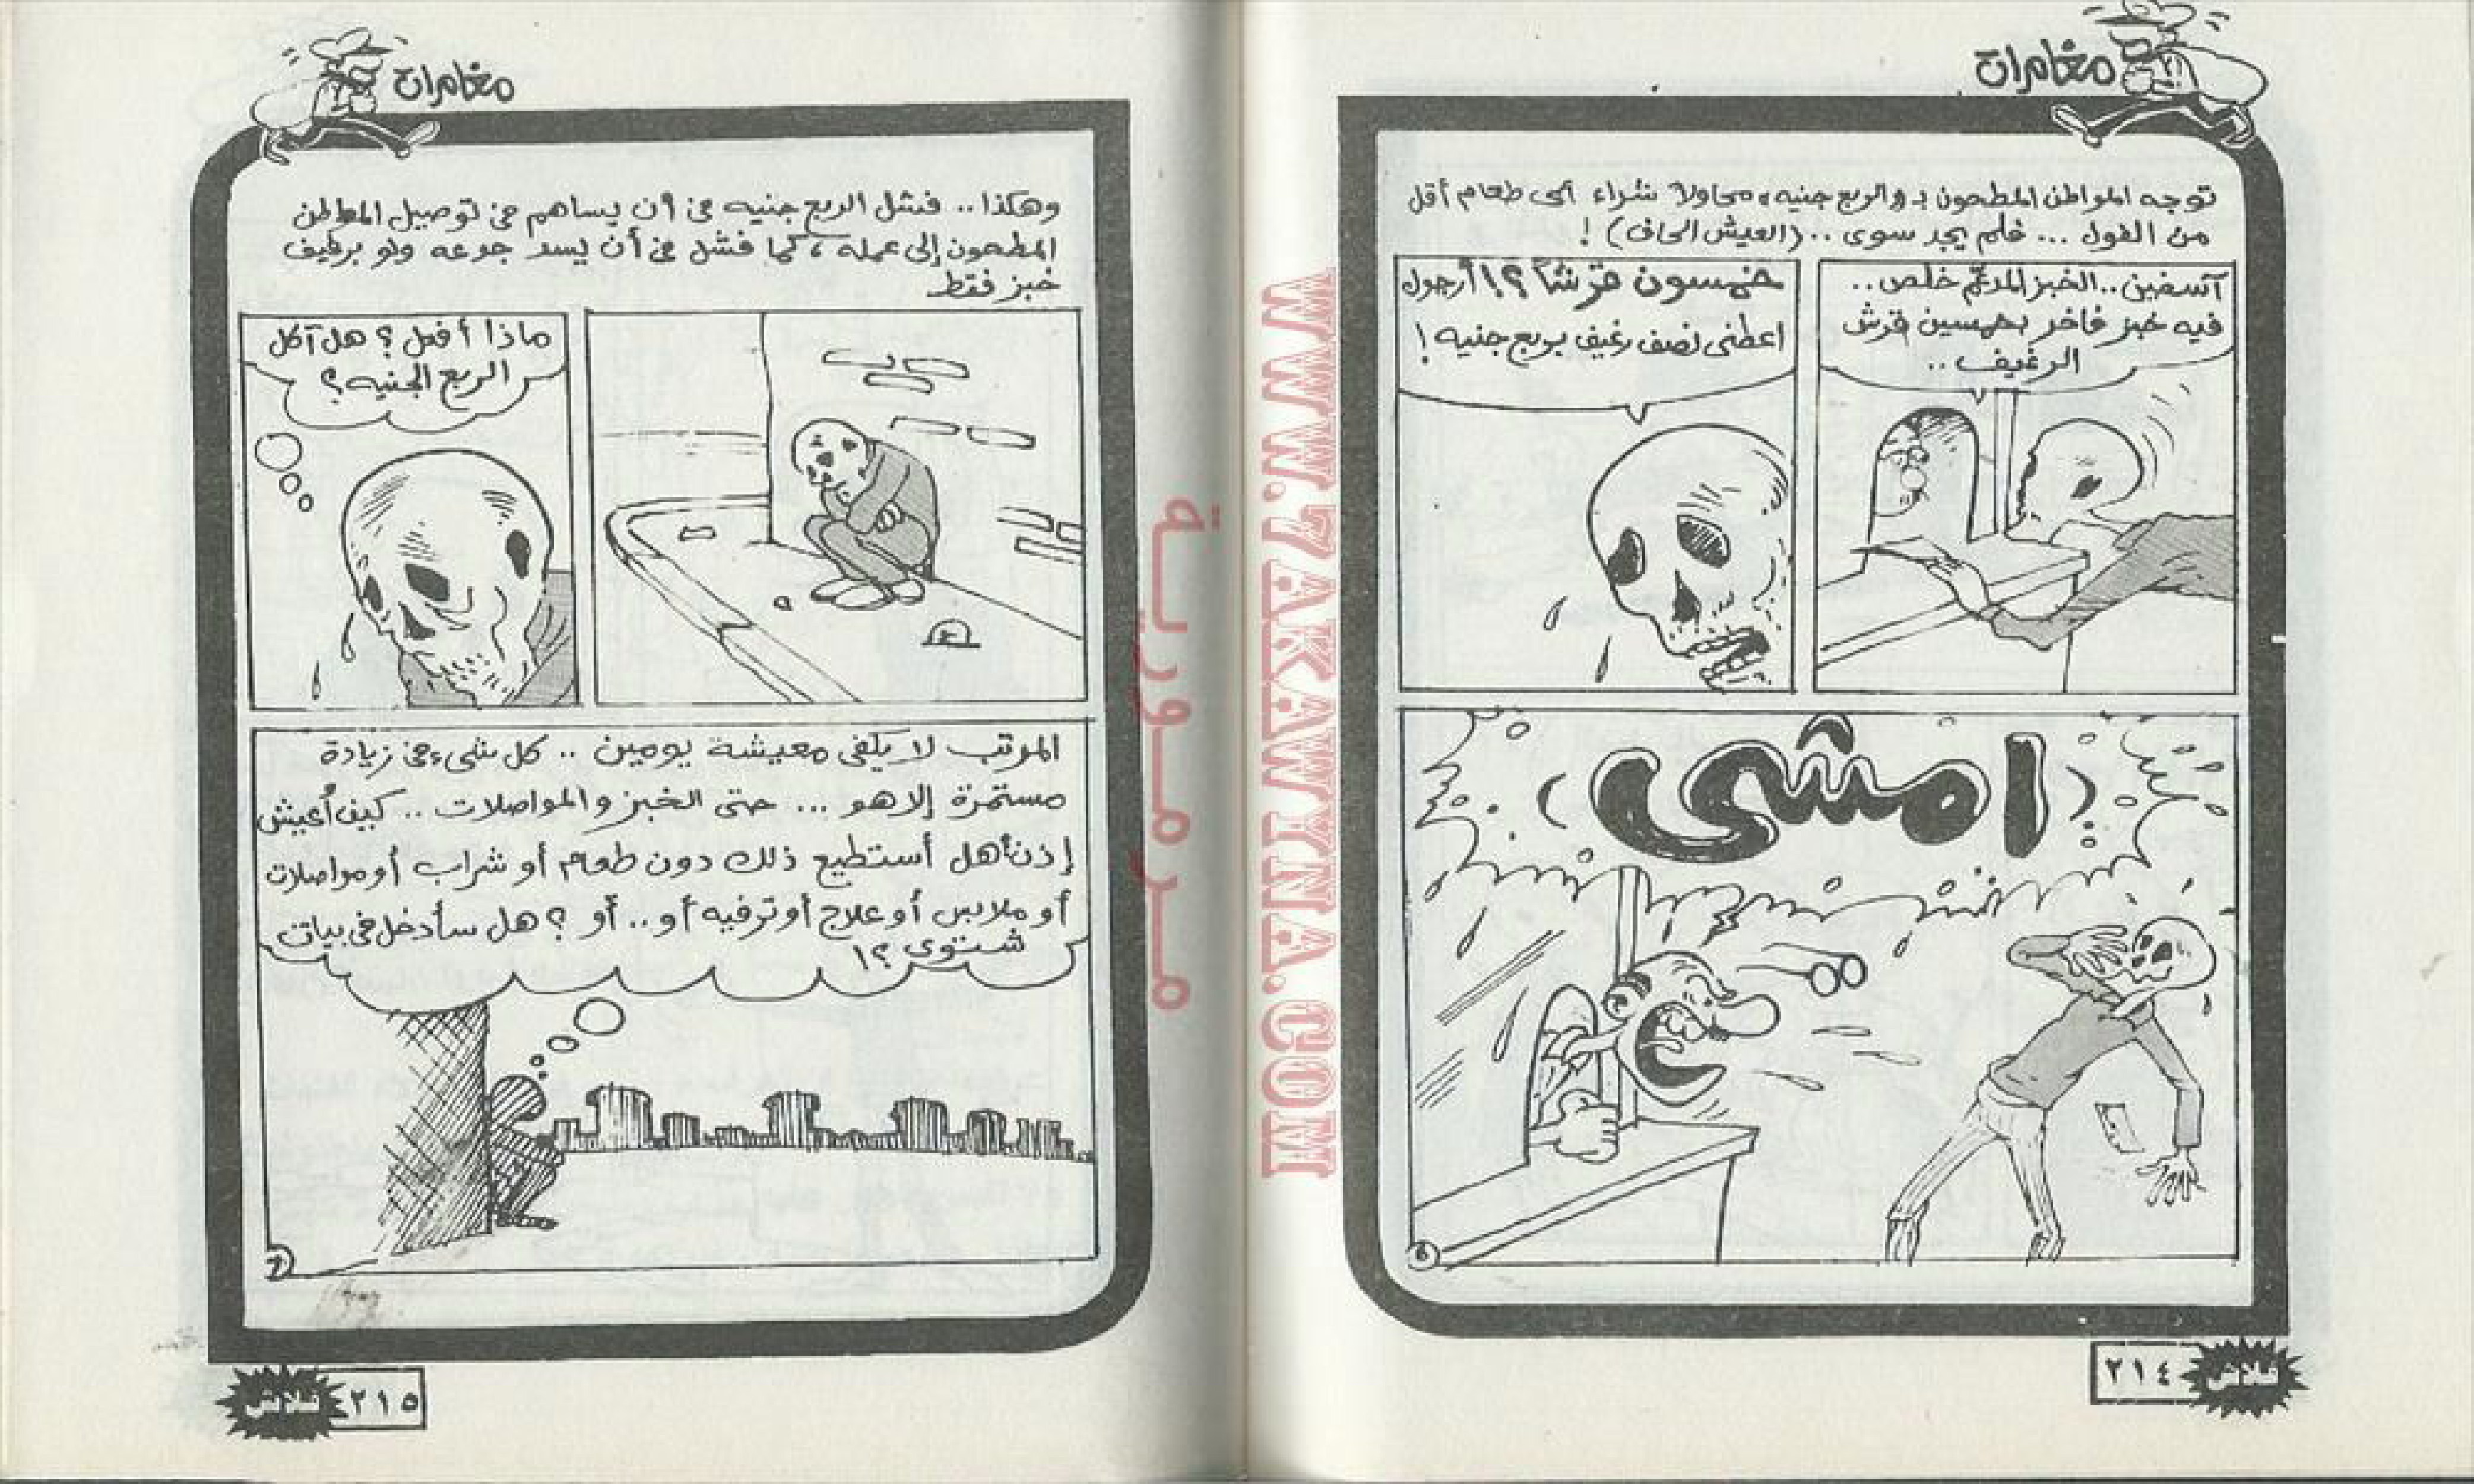 مغامرات
توجه المواطن المطحون بـ «الربع جنيه» محاولا شراء أى طعام أقل
من الفول ... فلم يجد سوى .. (العيش الحاف) !
آسفين .. الخبز المدعّم خلص ..
فيه خبز فاخر بخمسين قرش
الرغيف ..
خمسون قرشاً ؟! أرجوك
اعطنى نصف رغيف بربع جنيه !
امشى
٦
٢١٤
فلاش
مغامرات
وهكذا .. فشل الربع جنيه فى أن يساهم فى توصيل المواطن
المطحون إلى عمله ، كما فشل فى أن يسد جوعه ولو برغيف
خبز فقط
ماذا أفعل ؟ هل آكل
الربع الجنيه ؟
المرتب لا يكفى معيشة يومين .. كل شىء فى زيادة
مستمرة إلا هو ... حتى الخبز والمواصلات .. كيف أعيش
إذن؟ هل أستطيع ذلك دون طعام أو شراب أو مواصلات
أو ملابس أو علاج أو ترفيه أو .. أو ؟ هل سأدخل فى بيات
شتوى ؟!
٧
٢١٥
فلاش
مرمورية
WWW.ZAKAWNANA.COM